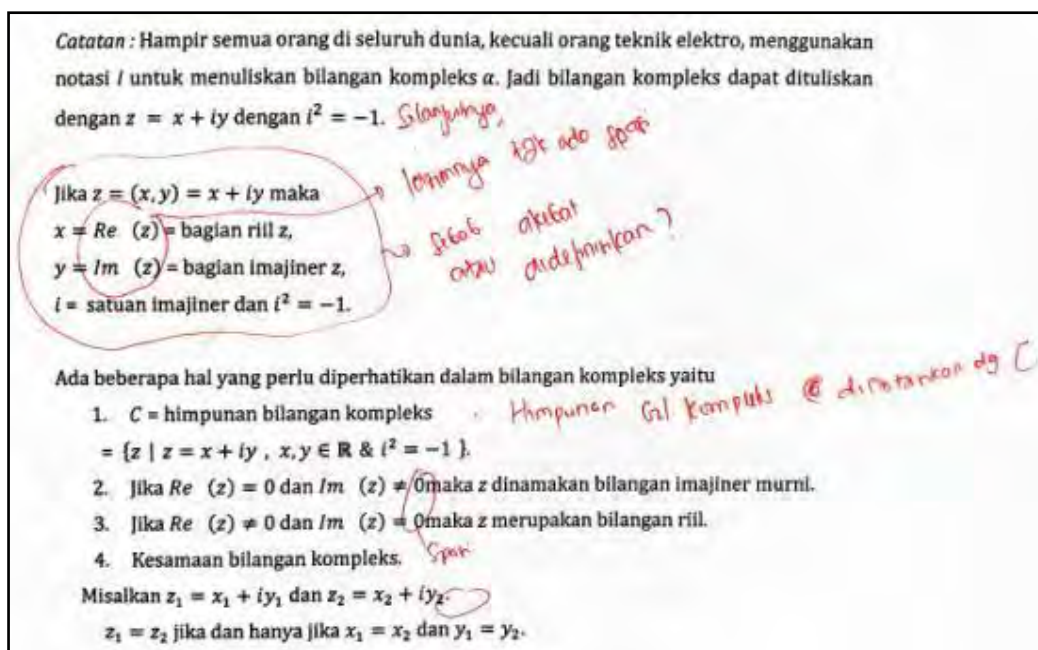 Catatan : Hampir semua orang di seluruh dunia, kecuali orang teknik elektro, menggunakan
notasi i untuk menuliskan bilangan kompleks α. Jadi bilangan kompleks dapat dituliskan
dengan z = x + iy dengan i² = −1. Slanjutnya,
lazimnya tdk ada spasi
Jika z = (x, y) = x + iy maka
x = Re (z) = bagian riil z,
sebab akibat
y = Im (z) = bagian imajiner z,
atau didefinisikan ?
i = satuan imajiner dan i² = −1.
Ada beberapa hal yang perlu diperhatikan dalam bilangan kompleks yaitu
1. C = himpunan bilangan kompleks
Himpunan bil kompleks dinotasikan dg C
= {z | z = x + iy , x, y ∈ ℝ & i² = −1 }.
2. Jika Re (z) = 0 dan Im (z) ≠ 0maka z dinamakan bilangan imajiner murni.
3. Jika Re (z) ≠ 0 dan Im (z) = 0maka z merupakan bilangan riil.
4. Kesamaan bilangan kompleks. Spasi
Misalkan z₁ = x₁ + iy₁ dan z₂ = x₂ + iy₂.
z₁ = z₂ jika dan hanya jika x₁ = x₂ dan y₁ = y₂.